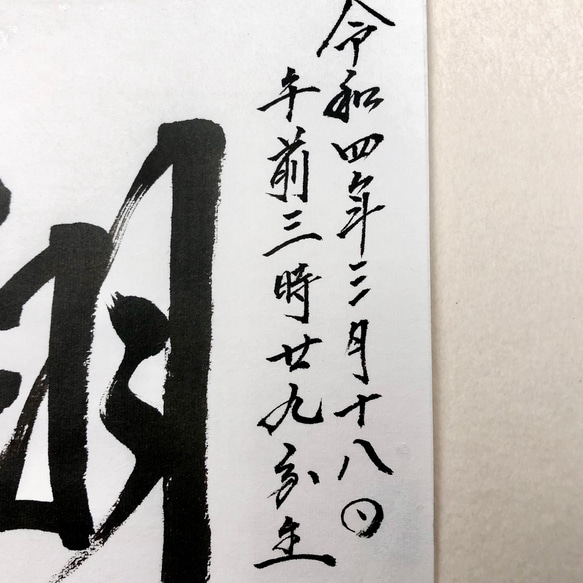 令和四年三月十八日
午前三時廿九分生